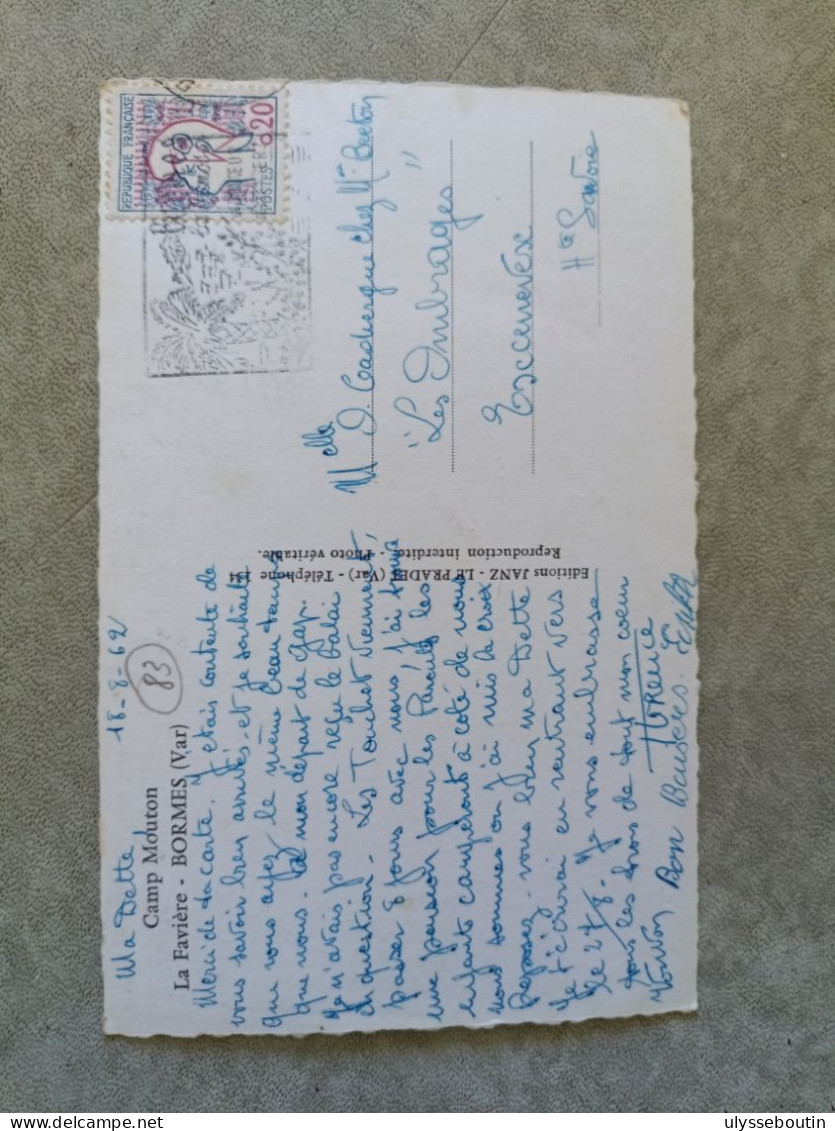 Ma Dette
18-8-62
83
Camp Mouton
La Favière - BORMES (Var)
Merci de ta carte. J'étais contente de
vous savoir bien arrivés, et je souhaite
que vous ayez le même beau temps
que nous. mon départ de Gap.
Je n'avais pas encore reçu le balai
en question. Les Touchet viennent
passer 8 jours avec nous, j'ai
une pension pour les Parents, les
enfants camperont à côté de nous
nous sommes où j'ai mis la croix
Reposez-vous bien ma Dette
Je t'écrirai en rentrant vers
le 27/8. Je vous embrasse
tous les trois de tout mon coeur
Bons Baisers.
Editions JANZ - LE PRADET (Var) - Téléphone 134
Reproduction interdite - Photo véritable.
REPUBLIQUE FRANÇAISE
0,20
POSTES
Melle D. chez Mme Breton
"Les Ombrages"
Excenevex
Hte Savoie
ulysseboutin